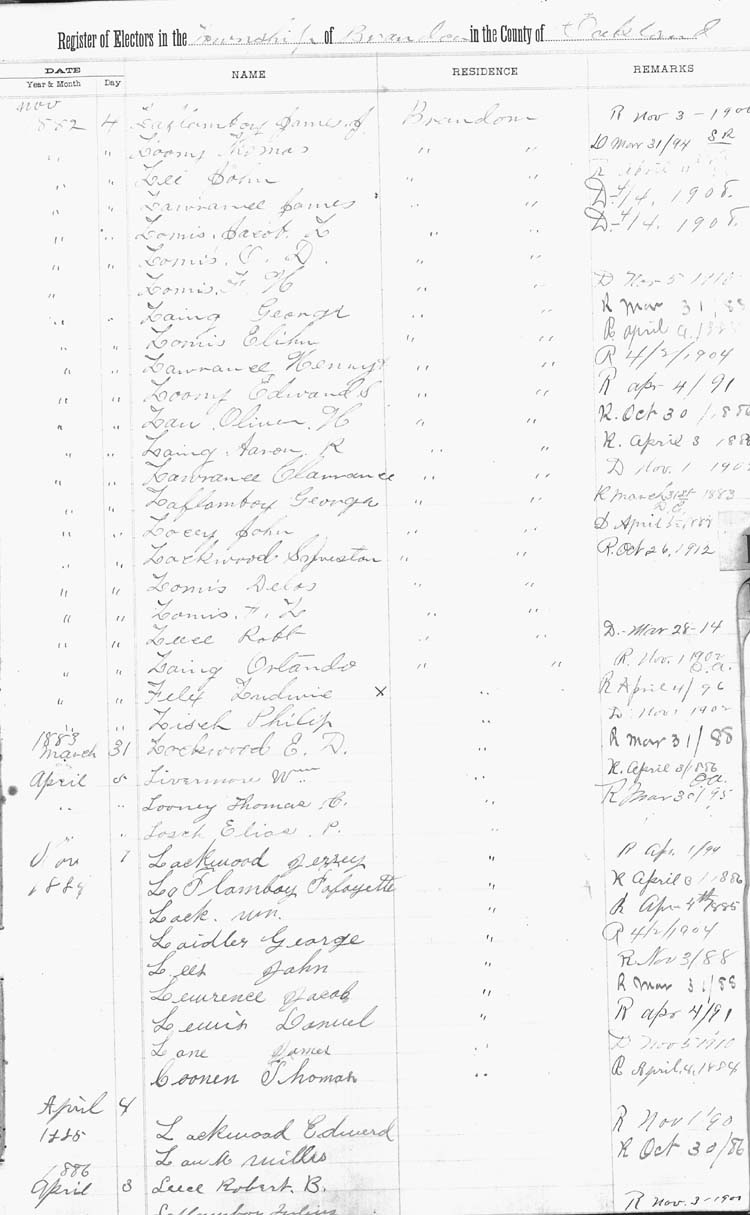 Register of Electors in the Township of Brandon in the County of Oakland
DATE NAME RESIDENCE REMARKS
Year & Month Day
Nov
1882 4 Laflamboy James J Brandon R Nov 3 - 1900
" " Loomy Thomas " " D Mar 31/94 S R
" " Lee John " " R April
" " Lawrance James " " D 4/4. 1908.
" " Lomis. Jacob. L " " D 4/4. 1908.
" " Lomis. O. D. " "
" Lomis. F. H " " D Nov 5 1910
" " Laing George " " R Mar 31/88
" " Lomis Elihu " " R april 9,
" " Lawrance Henry " " R 4/2/1904
" " Loomy Edward S " " R apr 4/91
" " Law Oliver H " " R. Oct 30/1886
" " Laing Aaron R " " R. April 3 1886
" " Lawrance Clarrance " " D Nov. 1 1902
" " Laflamboy George " " R March 31st 1883
" " Locey John " " D April
" " Lockwood Sylvester " " R. Oct 26, 1912
" " Lomis Delos " "
" " Lomis. F. L " "
" " Luce Robt " " D. - Mar 28-14
" " Laing Orlando " " R. Nov. 1 1902
" " Felix Ludwic x " R April 4/96
" " Lisch Philip " D Nov 1 1902
1883
March 31 Lockwood E. D. " R Mar 31/88
April 5 Livermore Wm " R. April 3/1886
" " Looney Thomas C. " R Mar 30/95
" " Losch Elias. P. "
Nov 1 Lackwood Jerrey " R Apr. 1/99
1884 La Flamboy Lafayette " R April 3/1886
Lack. Wm. " R Apr 4th 1885
Laidler George " R 4/2/1904
Lees John " R Nov 3/88
Lewrence Jacob " R Mar 31/88
Lewis Danuel " R apr 4/91
Lane James " D Nov 5 1910
Coonen Thomas " R April, 4, 1884
April 4
1885 Lackwood Edward R Nov 1 '90
Lawk Willis R Oct 30/86
1886
April 3 Luce Robert. B.
Laflamboy Julius R Nov. 3 - 1900